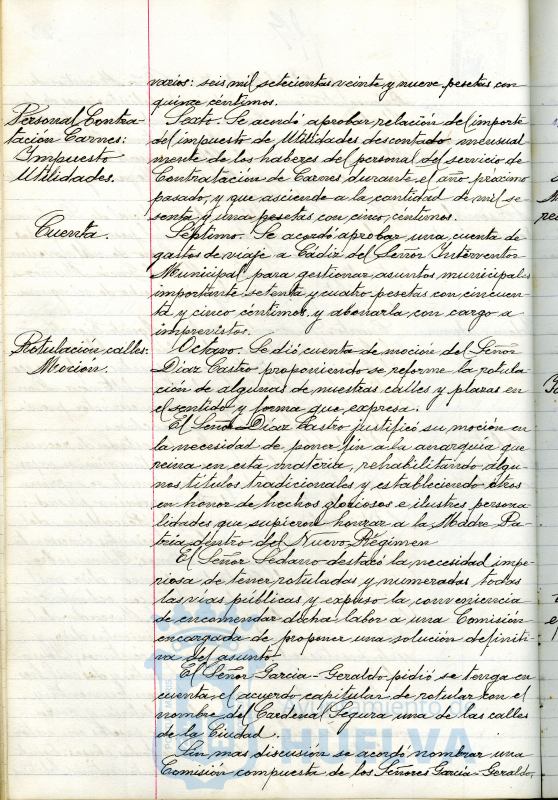 varios: seis mil setecientas veinte y nueve pesetas con
quince céntimos.
Personal Contra-
tación Carnes:
Impuesto
Utilidades.
Sexto. Se acordó aprobar relación del importe
del impuesto de Utilidades descontado mensual
mente de los haberes del personal del servicio de
Contratación de Carnes durante el año próximo
pasado, y que asciende a la cantidad de mil se-
senta y una pesetas con cinco céntimos.
Cuenta.
Séptimo. Se acordó aprobar una cuenta de
gastos de viaje a Cádiz del Señor Interventor
Municipal para gestionar asuntos municipales
importante setenta y cuatro pesetas con cincuen
ta y cinco céntimos y abonarla con cargo a
imprevistos.
Rotulación calles:
Moción.
Octavo. Se dió cuenta de moción del Señor
Díaz Castro proponiendo se reforme la rotula
ción de algunas de nuestras calles y plazas en
el sentido y forma que expresa.
El Señor Díaz Castro justificó su moción en
la necesidad de poner fin a la anarquía que
reina en esta materia, rehabilitando algu-
nos títulos tradicionales y estableciendo otros
en honor de hechos gloriosos e ilustres persona
lidades que supieron honrar a la Madre Pa-
tria dentro del Nuevo Régimen
El Señor Sedano destacó la necesidad impe
riosa de tener rotuladas y numeradas todas
las vías públicas y expuso la conveniencia
de encomendar dicha labor a una Comisión
encargada de proponer una solución definiti-
va del asunto.
El Señor García-Geraldo pidió se tenga en
cuenta el acuerdo capitular de rotular con el
nombre del Cardenal Segura una de las calles
de la Ciudad.
Sin mas discusión se acordó nombrar una
Comisión compuesta de los Señores García-Geraldo,
Ayuntamiento de
HUELVA